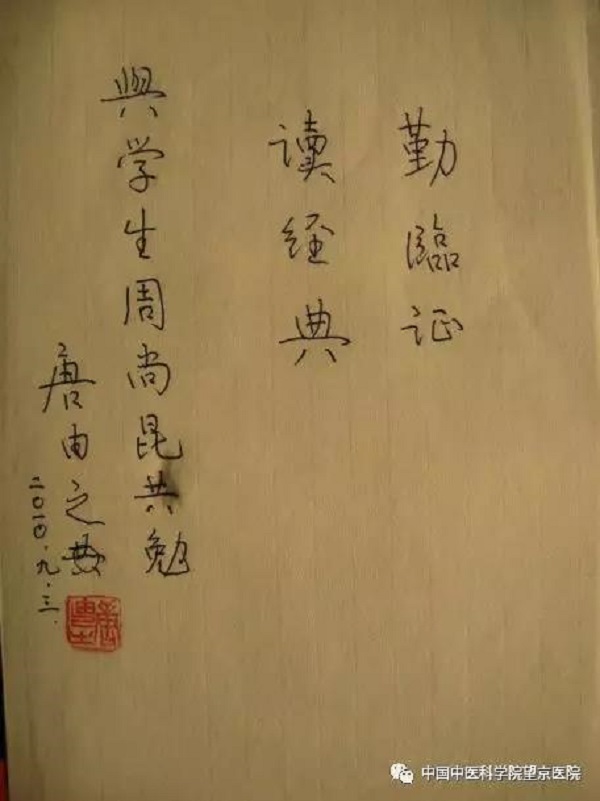 勤臨证
读经典
與学生周尚昆共勉
唐由之
二〇一〇.九.三.
中国中医科学院望京医院